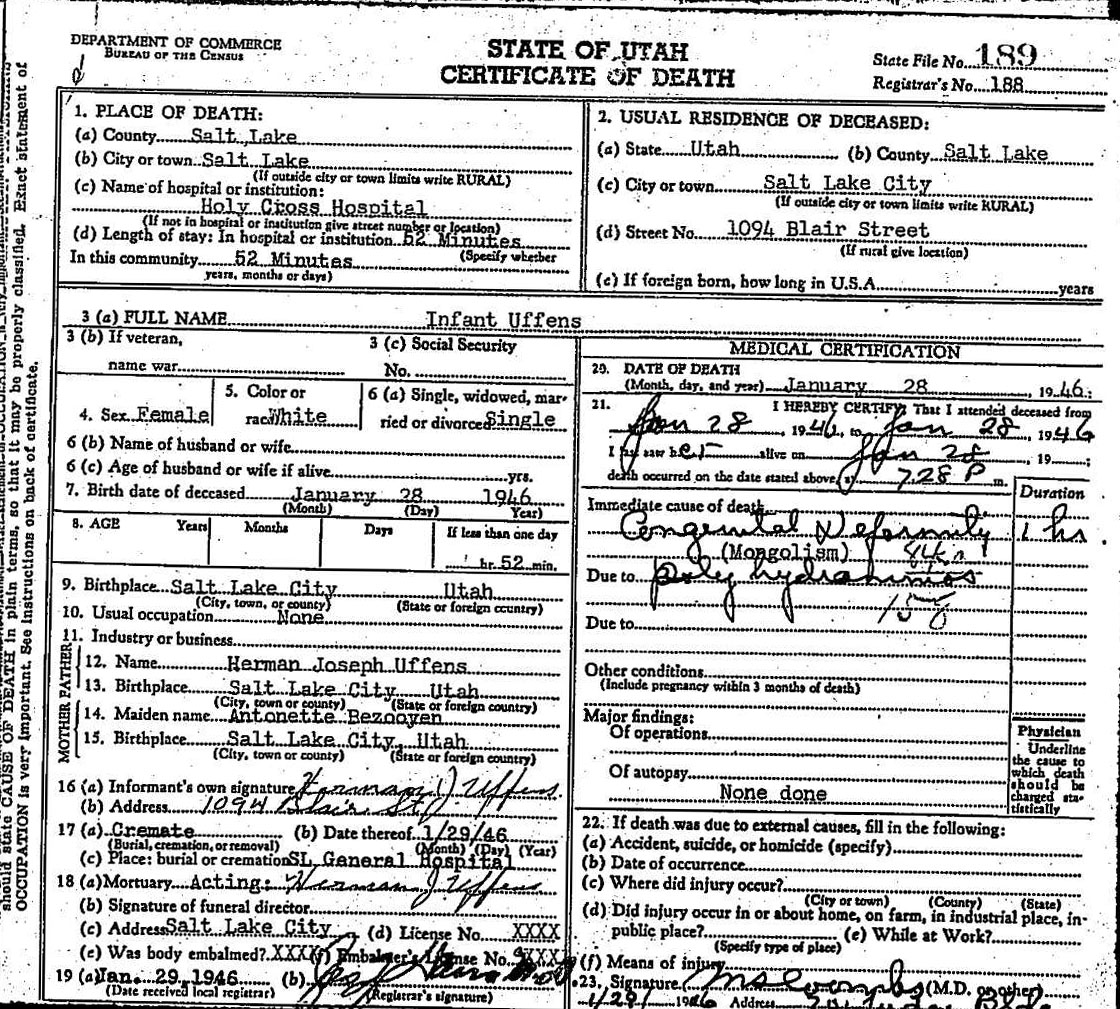 DEPARTMENT OF COMMERCE
BUREAU OF THE CENSUS
STATE OF UTAH
CERTIFICATE OF DEATH
State File No. 189
Registrar's No. 188
should state CAUSE OF DEATH in plain terms, so that it may be properly classified. Exact statement of
OCCUPATION is very important. See instructions on back of certificate.
1. PLACE OF DEATH:
(a) County Salt Lake
(b) City or town Salt Lake
(If outside city or town limits write RURAL)
(c) Name of hospital or institution:
Holy Cross Hospital
(If not in hospital or institution give street number or location)
(d) Length of stay: In hospital or institution 52 Minutes
(Specify whether
In this community 52 Minutes
years, months or days)
2. USUAL RESIDENCE OF DECEASED:
(a) State Utah (b) County Salt Lake
(c) City or town Salt Lake City
(If outside city or town limits write RURAL)
(d) Street No. 1094 Blair Street
(If rural give location)
(e) If foreign born, how long in U.S.A. years
3 (a) FULL NAME Infant Uffens
3 (b) If veteran,
name war
3 (c) Social Security
No.
4. Sex Female
5. Color or
race White
6 (a) Single, widowed, mar-
ried or divorced Single
6 (b) Name of husband or wife
6 (c) Age of husband or wife if alive yrs.
7. Birth date of deceased January 28 1946
(Month) (Day) Year)
8. AGE Years Months Days If less than one day
hr. 52 min.
9. Birthplace Salt Lake City Utah
(City, town, or county) (State or foreign country)
10. Usual occupation None
11. Industry or business
FATHER
12. Name Herman Joseph Uffens
13. Birthplace Salt Lake City Utah
(City, town or county) (State or foreign country)
MOTHER
14. Maiden name Antonette Bezooyen
15. Birthplace Salt Lake City, Utah
(City, town or county) (State or foreign country)
16 (a) Informant's own signature Herman J. Uffens
(b) Address 1094 Blair St
17 (a) Cremate (b) Date thereof 1/29/46
(Burial, cremation, or removal) (Month) (Day) (Year)
(c) Place: burial or cremation SL General Hospital
18 (a) Mortuary Acting: Herman J. Uffens
(b) Signature of funeral director
(c) Address Salt Lake City (d) License No. XXXX
(e) Was body embalmed? XXXX (f) Embalmer's License No. XXXX
19 (a) Jan. 29, 1946 (b)
(Date received local registrar) (Registrar's signature)
MEDICAL CERTIFICATION
20. DATE OF DEATH
(Month, day, and year) January 28 1946:
21. I HEREBY CERTIFY, That I attended deceased from
Jan 28, 1946, to Jan 28, 1946
I last saw her alive on Jan 28, 19 ;
death occurred on the date stated above, at 7:28 P m.
Duration
Immediate cause of death
Congenital Deformity 1 hr.
(Mongolism)
Due to Polyhydramnios
Due to
Other conditions
(Include pregnancy within 3 months of death)
Major findings:
Of operations
Of autopsy
None done
Physician
Underline
the cause to
which death
should be
charged sta-
tistically
22. If death was due to external causes, fill in the following:
(a) Accident, suicide, or homicide (specify)
(b) Date of occurrence
(c) Where did injury occur?
(City or town) (County) (State)
(d) Did injury occur in or about home, on farm, in industrial place, in-
public place? (e) While at Work?
(Specify type of place)
(f) Means of injury
23. Signature (M.D. or other)
1/29/ 1946 Address